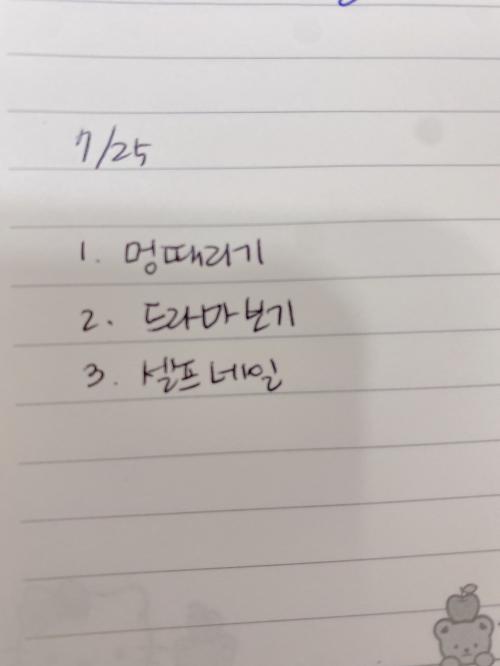 7/25
1. 멍때리기
2. 드라마보기
3. 셀프네일